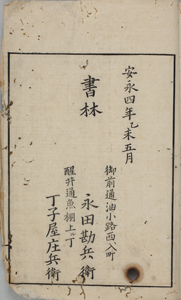 安永四年乙未五月
書林
御前通油小路西入町
永田勘兵衛
醒井通魚棚上ル丁
丁子屋庄兵衛